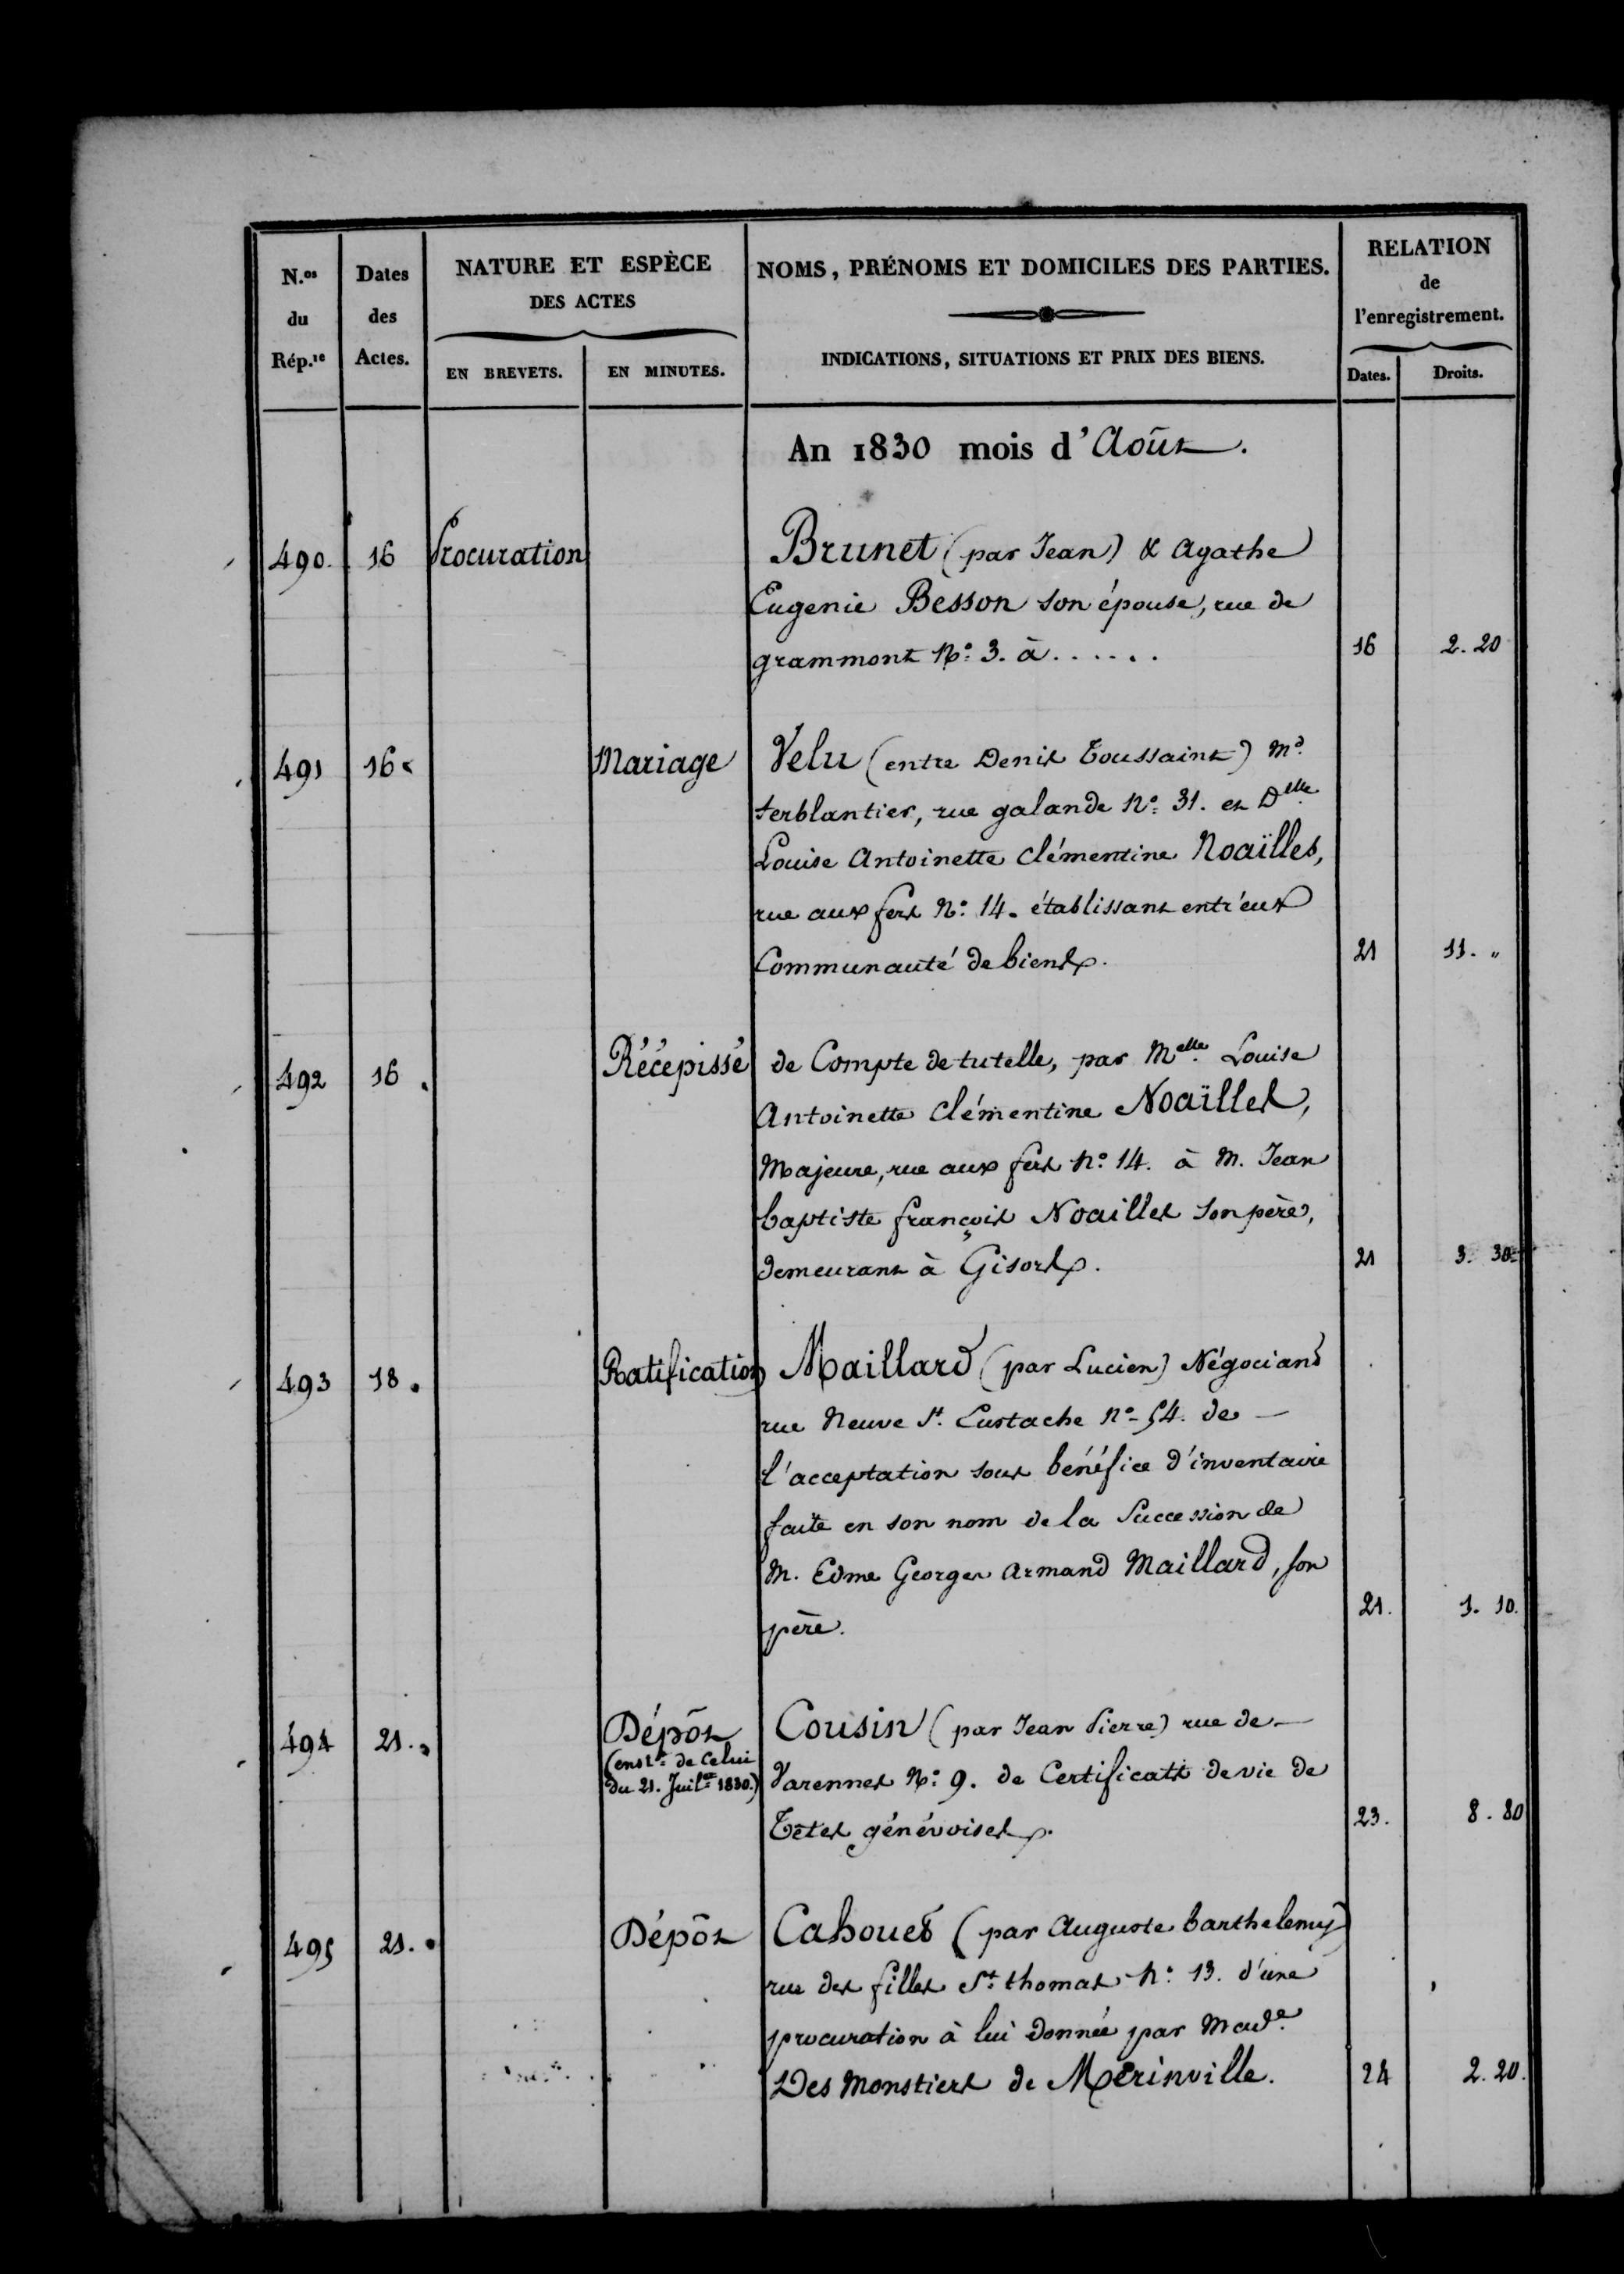 N.os
du
Rép.re
Dates
des
Actes.
NATURE ET ESPÈCE
DES ACTES
EN BREVETS.
EN MINUTES.
NOMS, PRÉNOMS ET DOMICILES DES PARTIES.
INDICATIONS, SITUATIONS ET PRIX DES BIENS.
RELATION
de
l'enregistrement.
Dates.
Droits.
An 1830 mois d'Août.
490. 16 Procuration Brunet (par Jean) & Agathe
Eugenie Besson son épouse, rue de
grammont No. 3. à ...... 16 2.20
491 16 Mariage Velu (entre Denis Toussaint) Md.
ferblantier, rue galande No. 31. et Delle.
Louise Antoinette Clémentine Noaïlles,
rue aux fers No. 14. établissant entr'eux
Communauté de biens. 21 11. "
492 16. Récépissé de Compte de tutelle, par Melle. Louise
Antoinette Clémentine Noaïlles,
Majeure, rue aux fers No. 14. à M. Jean
baptiste françois Noailles son père,
demeurant à Gisors. 21 3. 30
493 18. Ratification Maillard (par Lucien) Négociant
rue Neuve St. Eustache No. 54. de —
l'acceptation sous bénéfice d'inventaire
faite en son nom de la Succession de
M. Edme Georges Armand Maillard, son
père. 21. 1. 10.
494 21. Dépôt Cousin (par Jean Pierre) rue de —
(enste. de Celui
du 21. Juillet 1830.) Varennes No. 9. de Certificats de vie de
Têtes génévoises. 23. 8. 80
495 21. Dépôt Cahouet (par Auguste barthelemy)
rue des filles St. thomas No. 13. d'une
procuration à lui donnée par Made.
Des Monstiers de Mérinville. 24 2. 20.